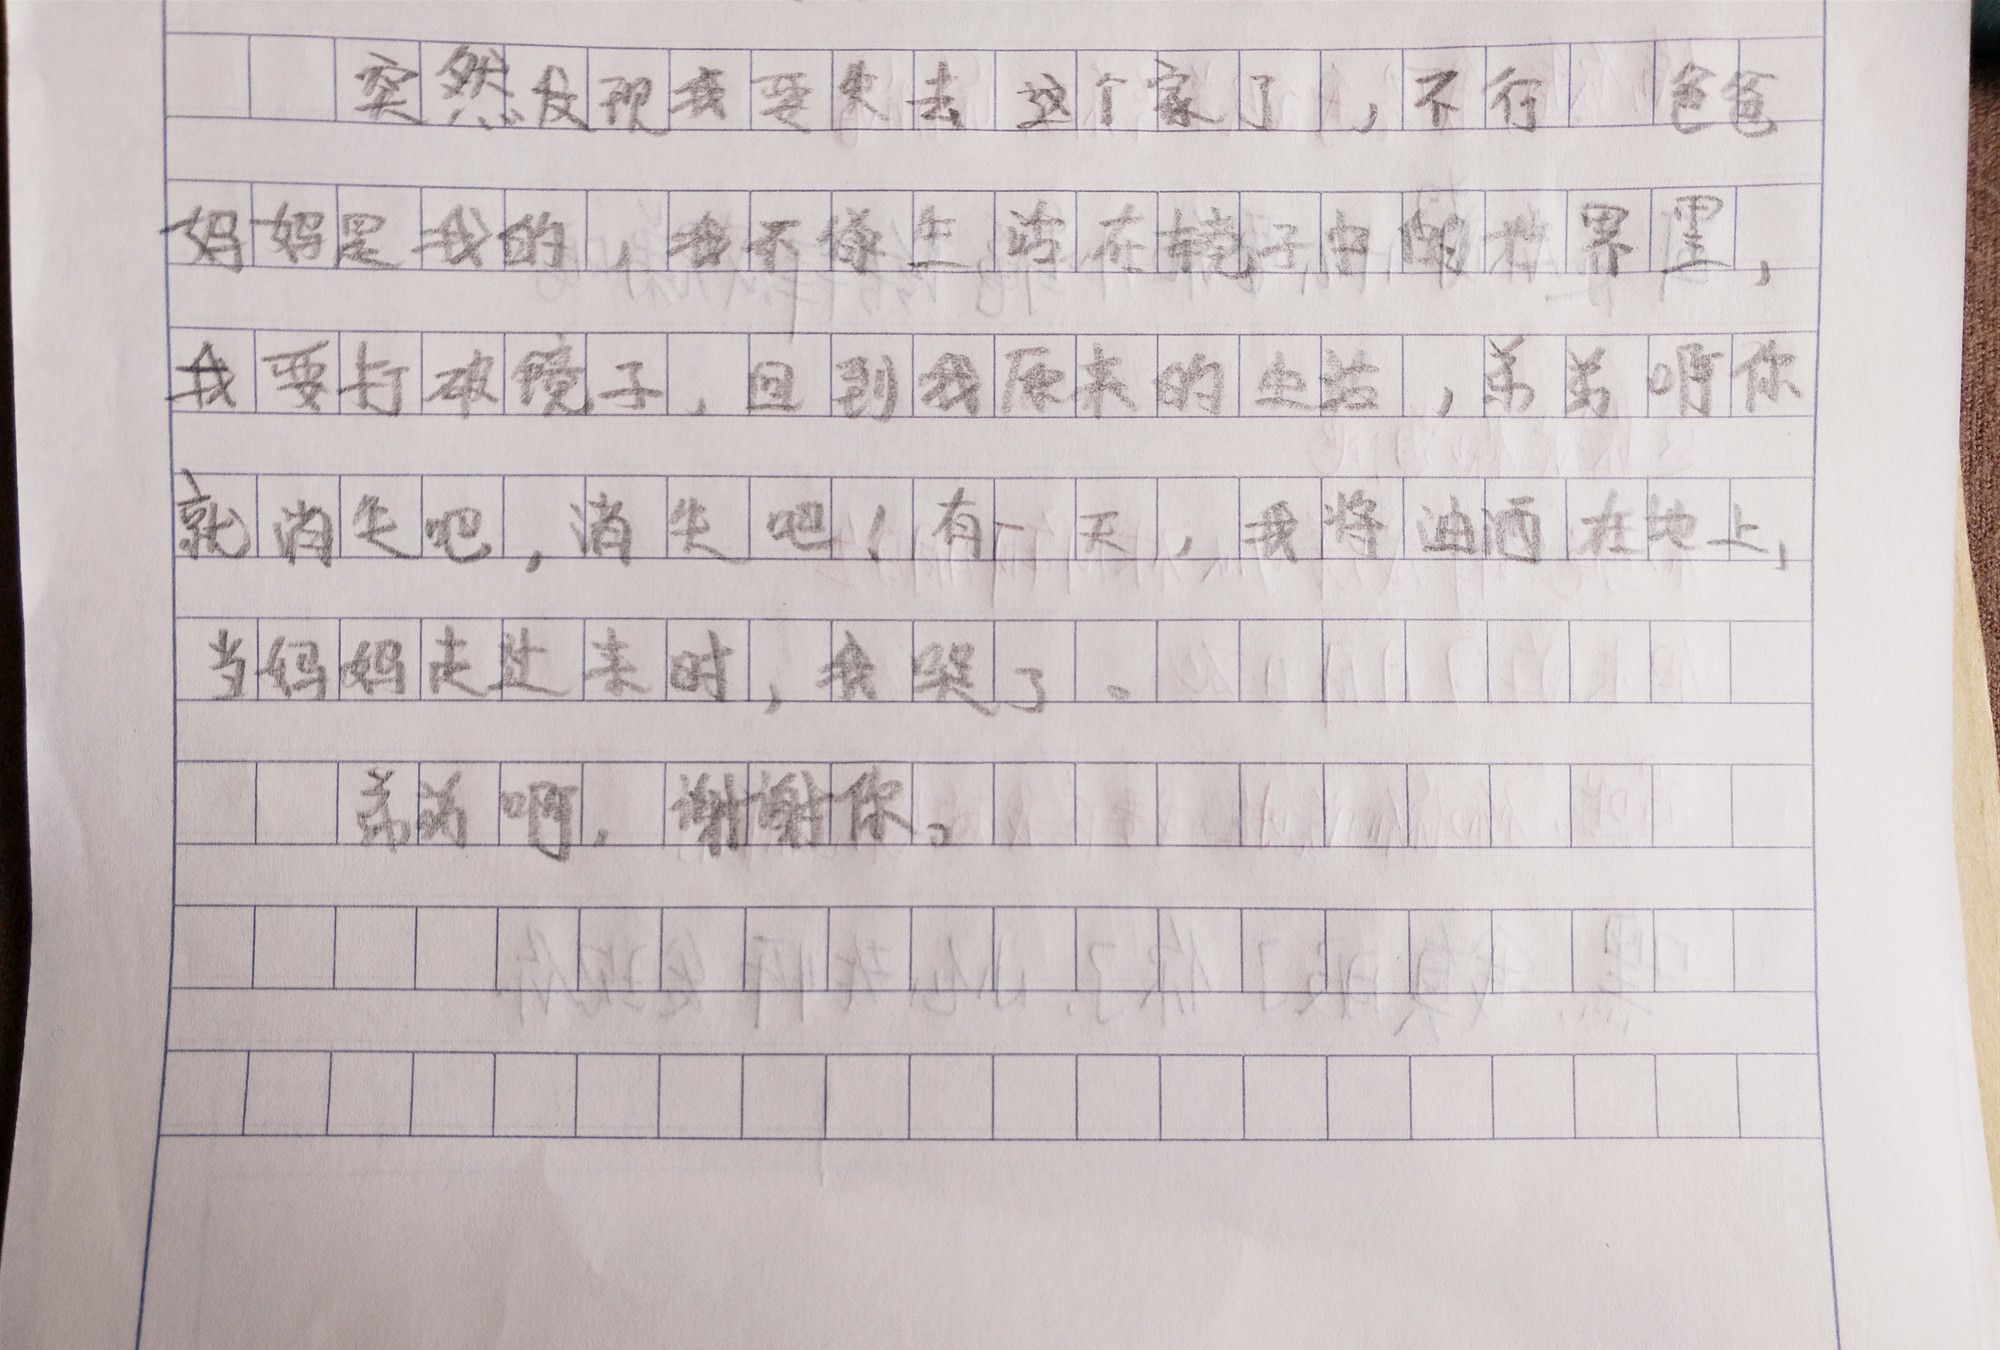 突然发现我要失去这个家了，不行 爸爸
妈妈是我的，我不像生活在镜子中的世界里，
我要打破镜子，回到我原来的生活，弟弟啊你
就消失吧，消失吧！有一天，我将油洒在地上，
当妈妈走过来时，我哭了。
弟弟啊，谢谢你。